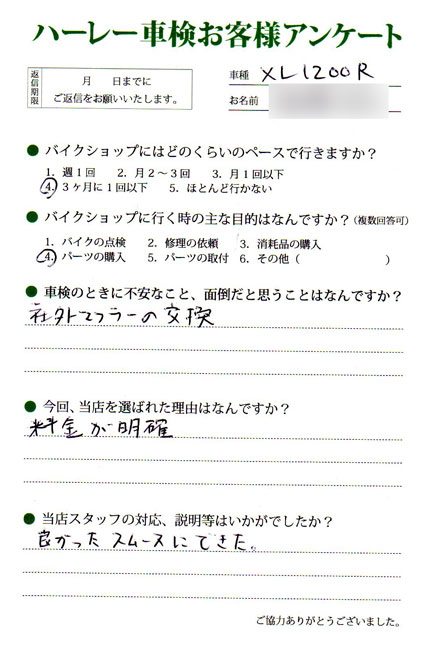 ハーレー車検お客様アンケート
返信期限
月 日までに
ご返信をお願いいたします。
車種 XL1200R
お名前
● バイクショップにはどのくらいのペースで行きますか？
1. 週1回 2. 月2～3回 3. 月1回以下
4. 3ヶ月に1回以下 5. ほとんど行かない
● バイクショップに行く時の主な目的はなんですか？（複数回答可）
1. バイクの点検 2. 修理の依頼 3. 消耗品の購入
4. パーツの購入 5. パーツの取付 6. その他（ ）
● 車検のときに不安なこと、面倒だと思うことはなんですか？
社外マフラーの交換
● 今回、当店を選ばれた理由はなんですか？
料金が明確
● 当店スタッフの対応、説明等はいかがでしたか？
良かった スムースにできた。
ご協力ありがとうございました。